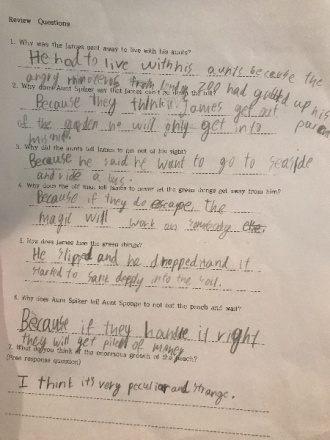 Review Questions
1. Why was the James sent away to live with his aunts?
He had to live with his aunts because the
angry rhinoceros from london zoo had gulped up his
parents
2. Why does Aunt Spiker say that James can't
Because they think James get out
of the garden he will only get into
mischief.
3. Why did the aunts tell James to get out of his sight?
Because he said he want to go to seaside
and ride a bus.
4. Why does the old man tell James to never let the green things get away from him?
Because if they do escape, the
magic will work on somebody else
5. How does James lose the green things?
He slipped and he dropped and it
started to sank deeply into the soil.
6. Why does Aunt Spiker tell Aunt Sponge to not eat the peach and wait?
Because if they handle it right
they will get piles of money
7. What do you think of the enormous growth of the peach?
(Free response question)
I think its very peculiar and strange.